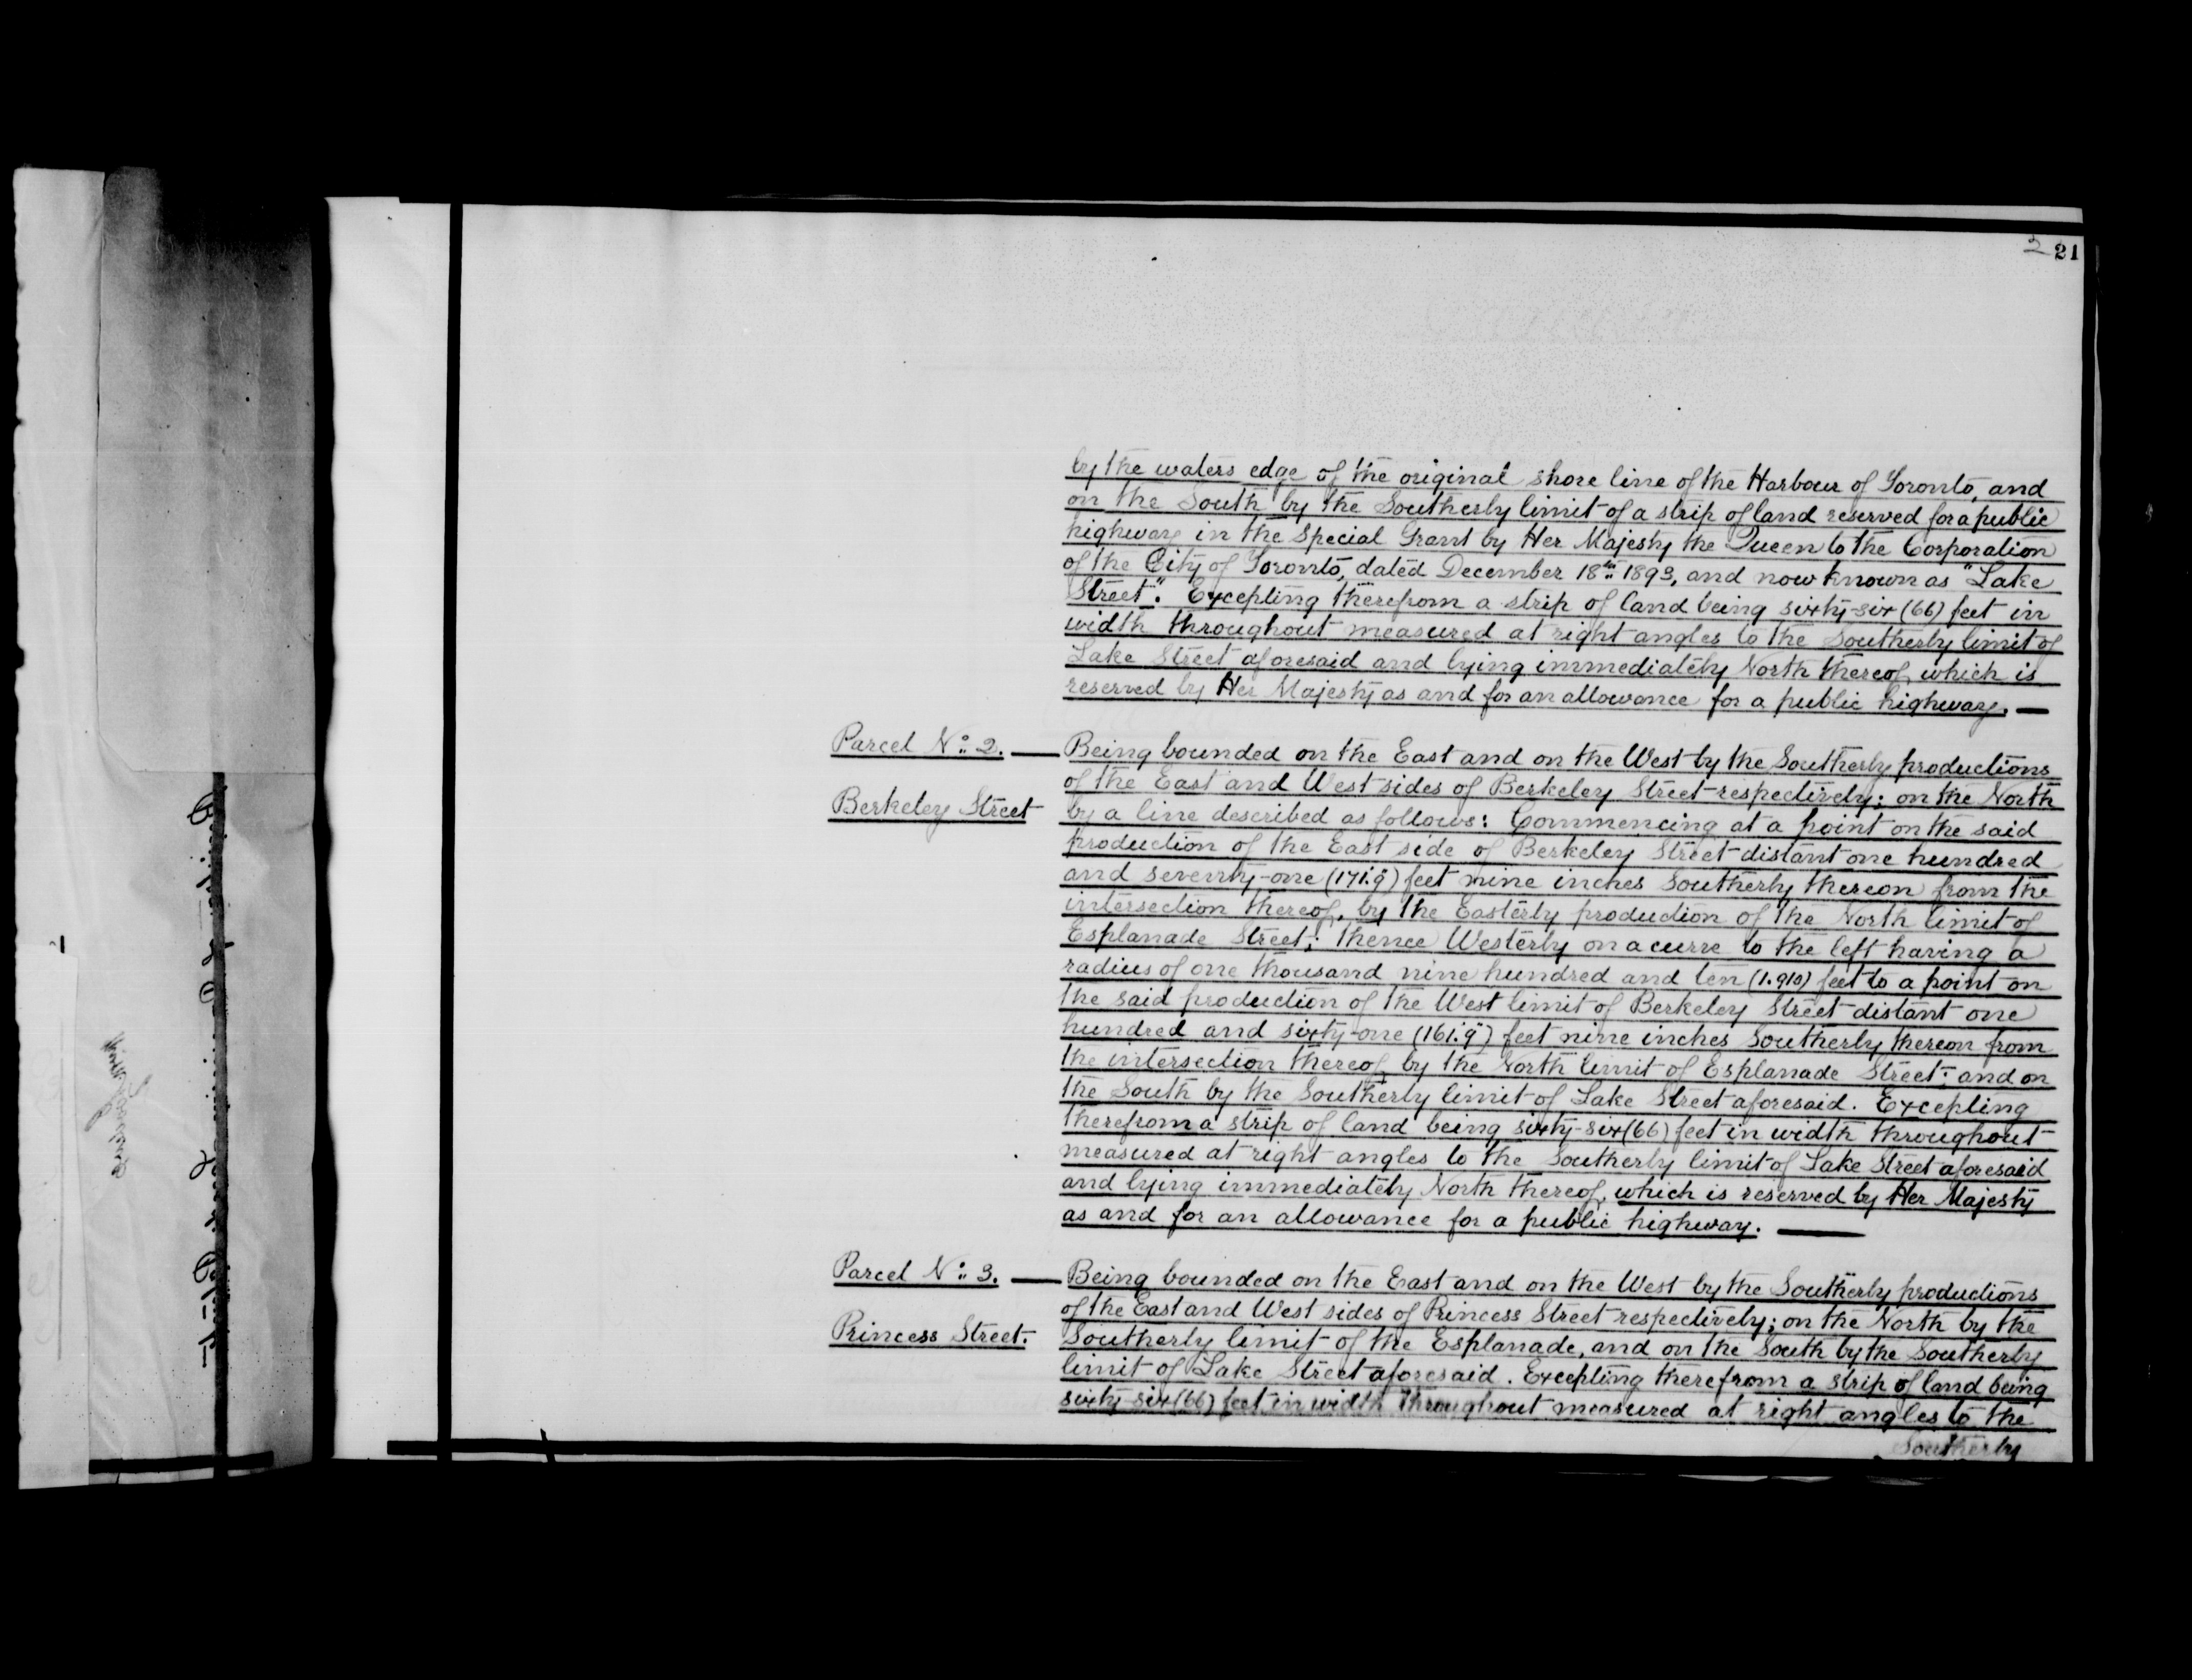 2 21
by the waters edge of the original shore line of the Harbour of Toronto, and
on the South by the Southerly limit of a strip of land reserved for a public
highway in the Special Grant by Her Majesty the Queen to the Corporation
of the City of Toronto, dated December 18th 1893, and now known as "Lake
Street". Excepting therefrom a strip of land being sixty-six (66) feet in
width throughout measured at right angles to the Southerly limit of
Lake Street aforesaid and lying immediately North thereof, which is
reserved by Her Majesty as and for an allowance for a public highway. —
Parcel No. 2. — Being bounded on the East and on the West by the Southerly productions
of the East and West sides of Berkeley Street respectively; on the North
Berkeley Street by a line described as follows: Commencing at a point on the said
production of the East side of Berkeley Street distant one hundred
and seventy-one (171'.9") feet nine inches Southerly thereon from the
intersection thereof, by the Easterly production of the North limit of
Esplanade Street; thence Westerly on a curve to the left having a
radius of one thousand nine hundred and ten (1.910) feet to a point on
the said production of the West limit of Berkeley Street distant one
hundred and sixty-one (161'.9") feet nine inches Southerly thereon from
the intersection thereof, by the North limit of Esplanade Street; and on
the South by the Southerly limit of Lake Street aforesaid. Excepting
therefrom a strip of land being sixty-six (66) feet in width throughout
measured at right angles to the Southerly limit of Lake Street aforesaid
and lying immediately North thereof, which is reserved by Her Majesty
as and for an allowance for a public highway. —
Parcel No. 3. — Being bounded on the East and on the West by the Southerly productions
of the East and West sides of Princess Street respectively; on the North by the
Princess Street. Southerly limit of the Esplanade, and on the South by the Southerly
limit of Lake Street aforesaid. Excepting therefrom a strip of land being
sixty-six (66) feet in width throughout measured at right angles to the
Southerly